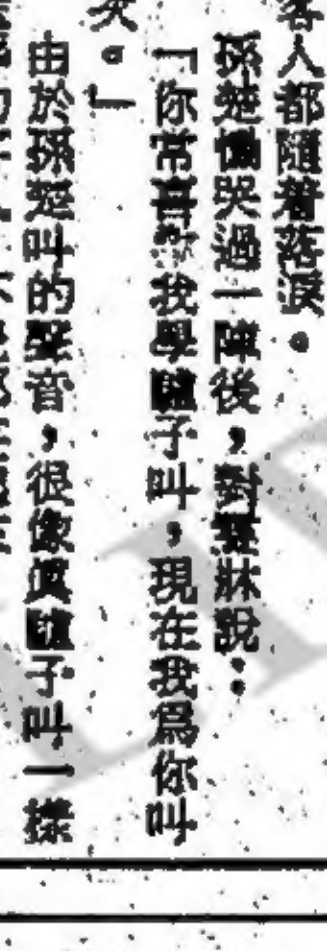 客人都隨着落淚。
孫楚慟哭過一陣後，對靈牀說：
「你常喜歡我學驢子叫，現在我爲你叫
次。」
由於孫楚叫的聲音，很像眞驢子叫一樣